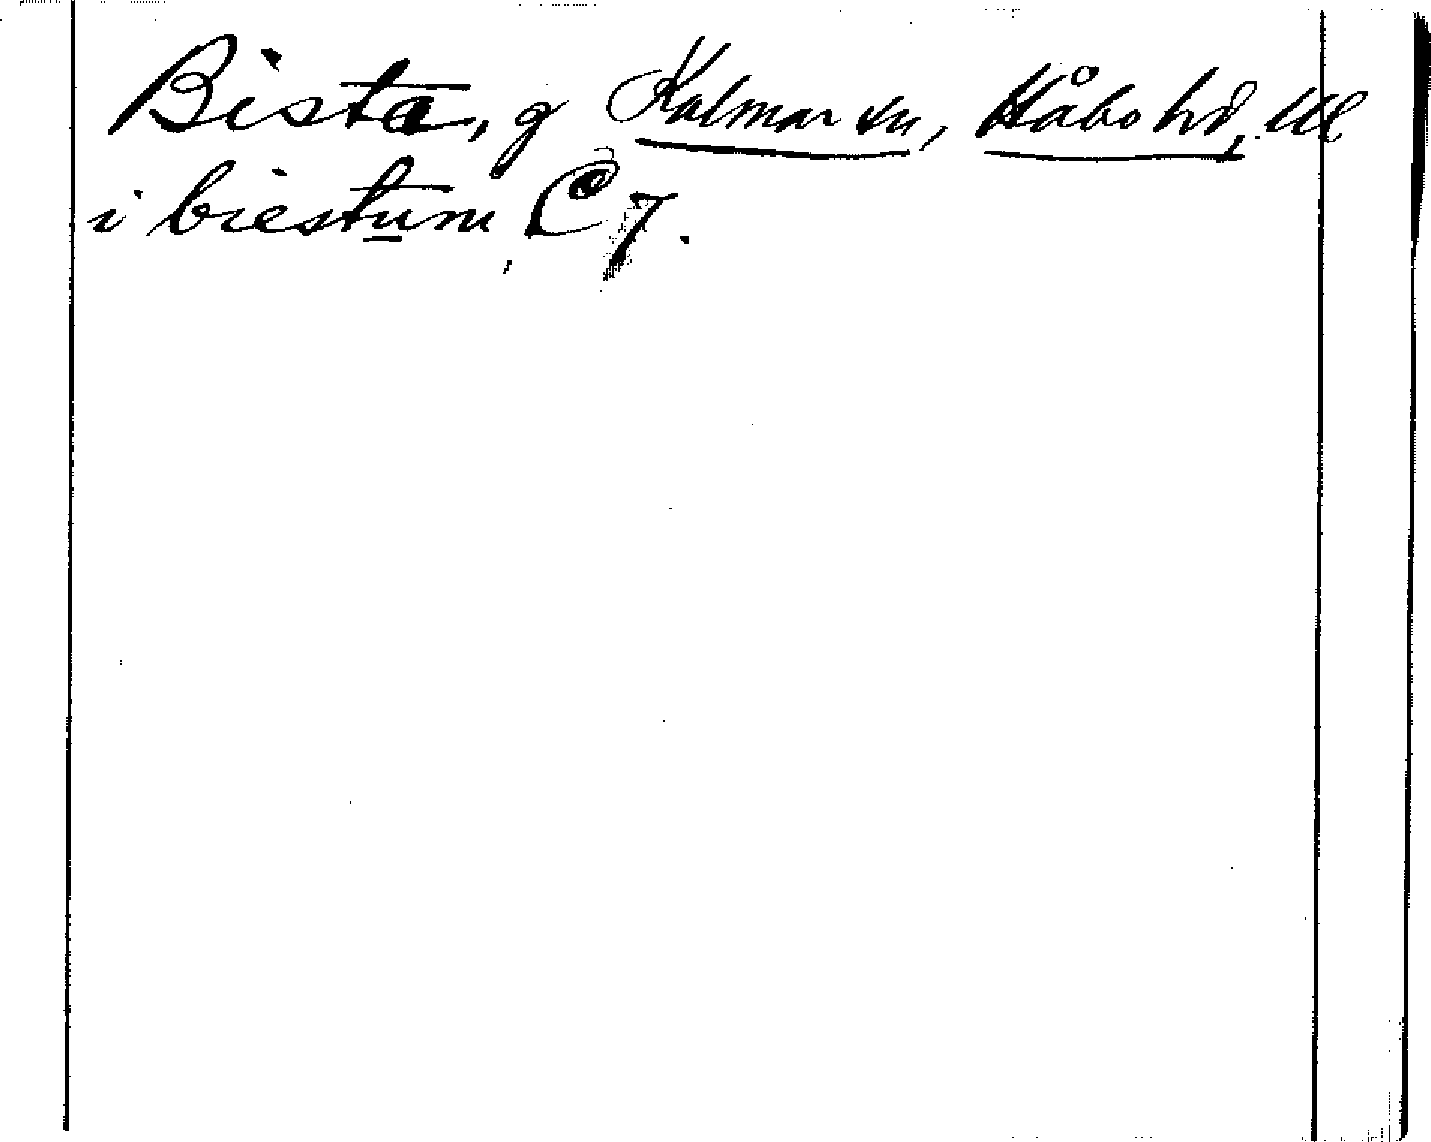 Bista, g Kalmar sn, Håbo hd, Ul
i biestum, C 7.